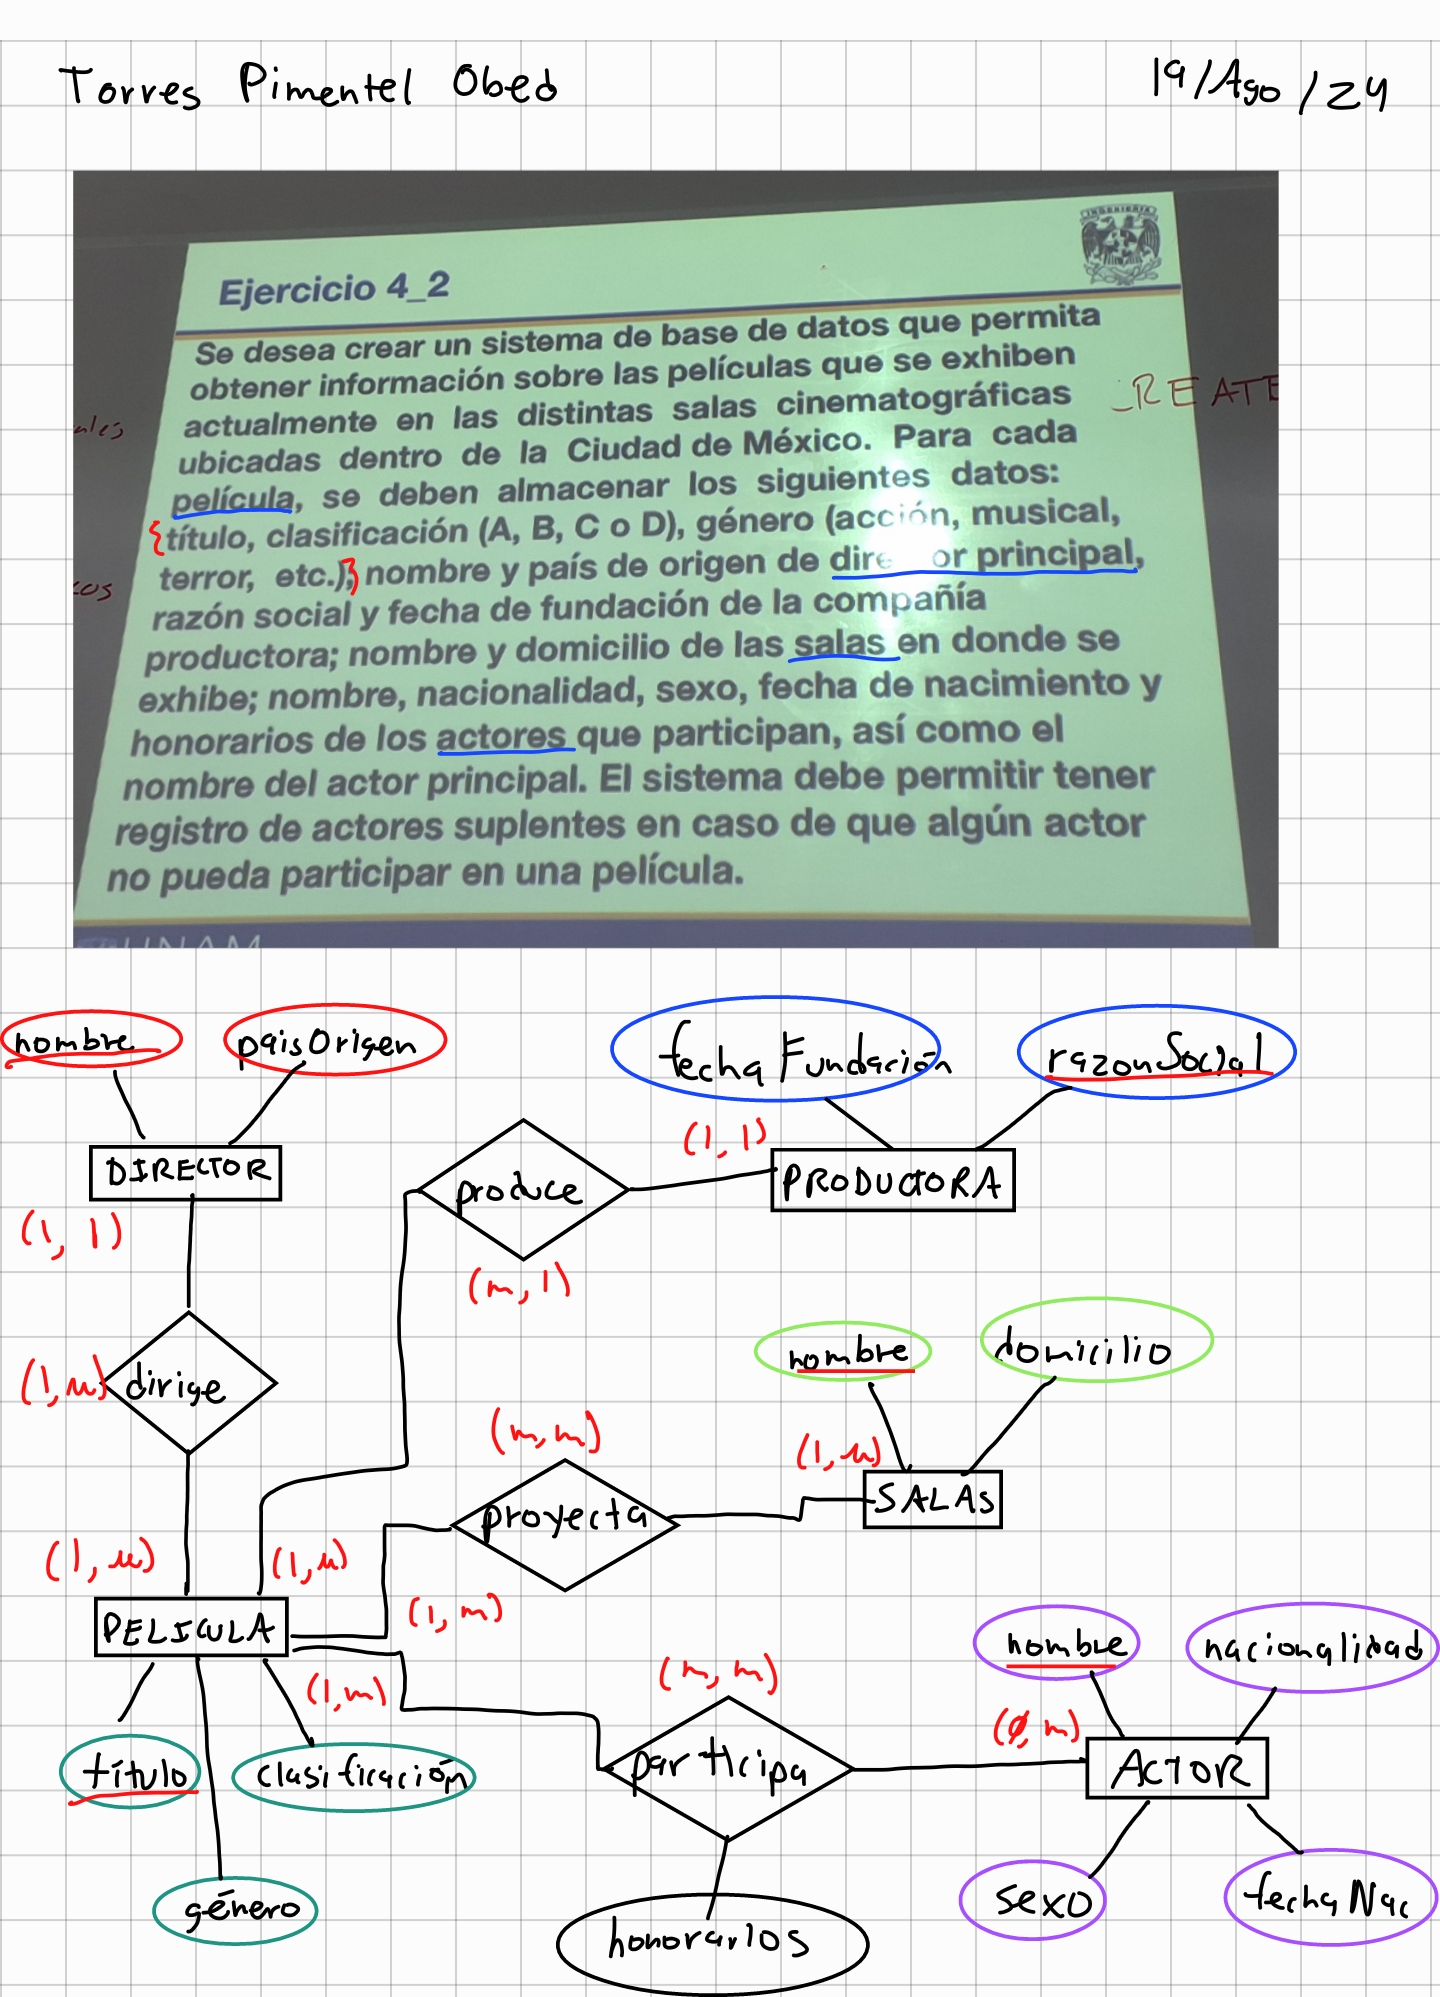 Torres Pimentel Obed
19/Ago/24
INGENIERIA
Ejercicio 4_2
Se desea crear un sistema de base de datos que permita
obtener información sobre las películas que se exhiben
actualmente en las distintas salas cinematográficas
_REATE
ubicadas dentro de la Ciudad de México. Para cada
película, se deben almacenar los siguientes datos:
{título, clasificación (A, B, C o D), género (acción, musical,
terror, etc.);} nombre y país de origen de director principal,
razón social y fecha de fundación de la compañía
productora; nombre y domicilio de las salas en donde se
exhibe; nombre, nacionalidad, sexo, fecha de nacimiento y
honorarios de los actores que participan, así como el
nombre del actor principal. El sistema debe permitir tener
registro de actores suplentes en caso de que algún actor
no pueda participar en una película.
UNAM
nombre
paisOrigen
fechaFundación
razonSocial
DIRECTOR
produce
(1, 1)
PRODUCTORA
(1, 1)
(m, 1)
nombre
domicilio
(1, m)
dirige
(m, m)
(1, m)
proyecta
SALAS
(1, m)
(1, m)
PELICULA
(1, m)
nombre
nacionalidad
(1, m)
(m, m)
(0, m)
título
clasificación
participa
ACTOR
género
honorarios
sexo
fechaNac